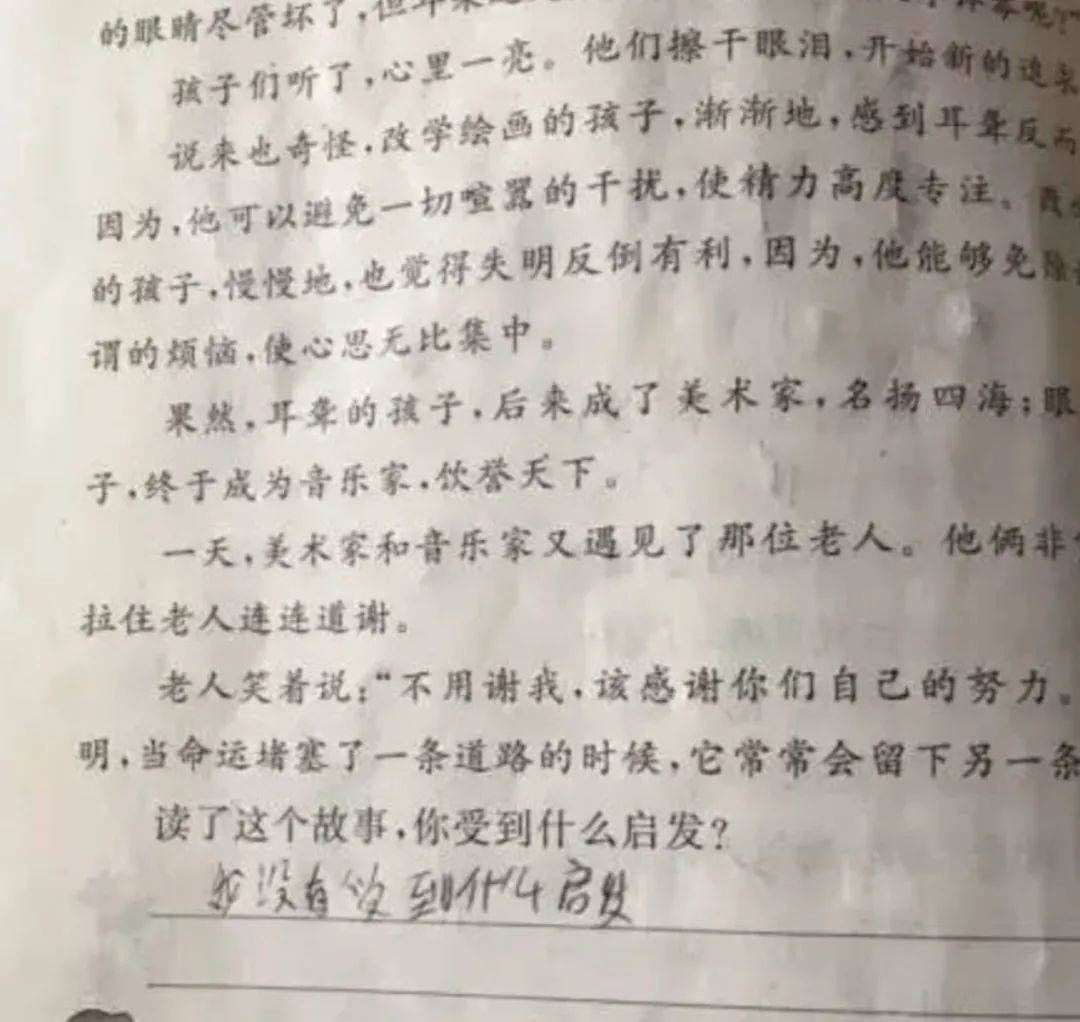 的眼睛尽管坏了,但耳朵
孩子们听了,心里一亮。他们擦干眼泪,开始新的追求
说来也奇怪,改学绘画的孩子,渐渐地,感到耳聋反而
因为,他可以避免一切喧嚣的干扰,使精力高度专注。
的孩子,慢慢地,也觉得失明反倒有利,因为,他能够免除
谓的烦恼,使心思无比集中。
果然,耳聋的孩子,后来成了美术家,名扬四海;眼
子,终于成为音乐家,饮誉天下。
一天,美术家和音乐家又遇见了那位老人。他俩非
拉住老人连连道谢。
老人笑着说:“不用谢我,该感谢你们自己的努力。
明,当命运堵塞了一条道路的时候,它常常会留下另一条
读了这个故事,你受到什么启发?
我没有受到什么启发